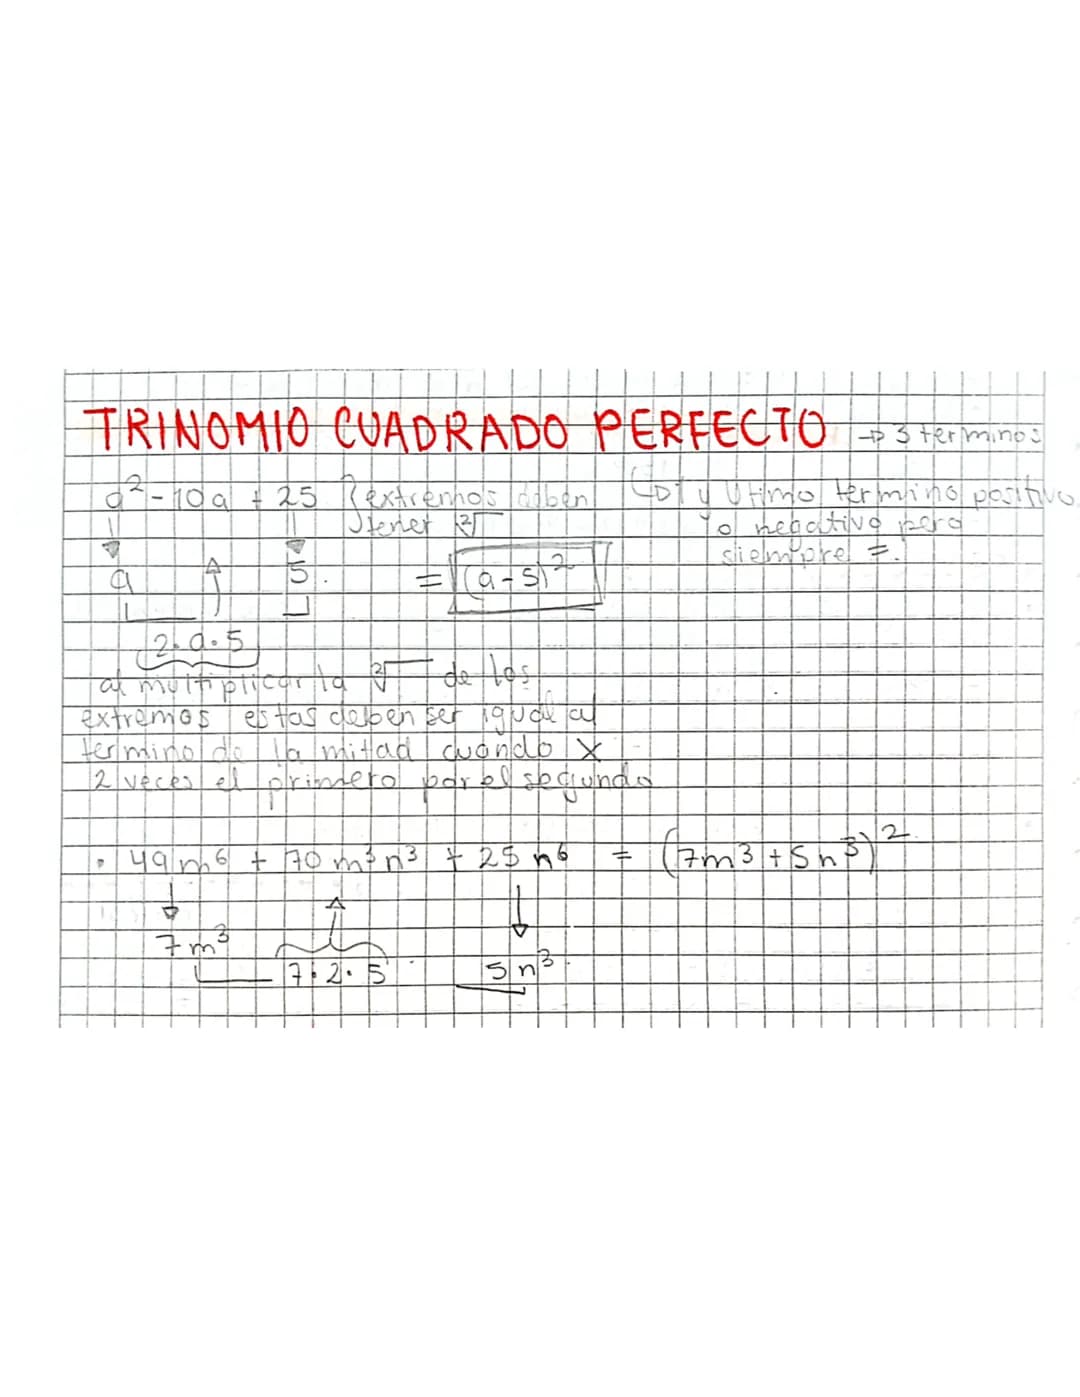 TRINOMIO CUADRADO PERFECTO → 3 terminos
a² - 10a + 25 } extremos deben tener ²√
↳ 1 y Utimo termino positivo
o negativo pero
siempre =.
a 5.
= (a-5)²
2·a·5
al multiplicar la ²√ de los
extremos estas deben ser igual al
termino de la mitad cuando x
2 veces el primero por el segundo
• 49m⁶ + 70m³n³ + 25n⁶ = (7m³+5n³)²
7m³
7·2·5 5n³.